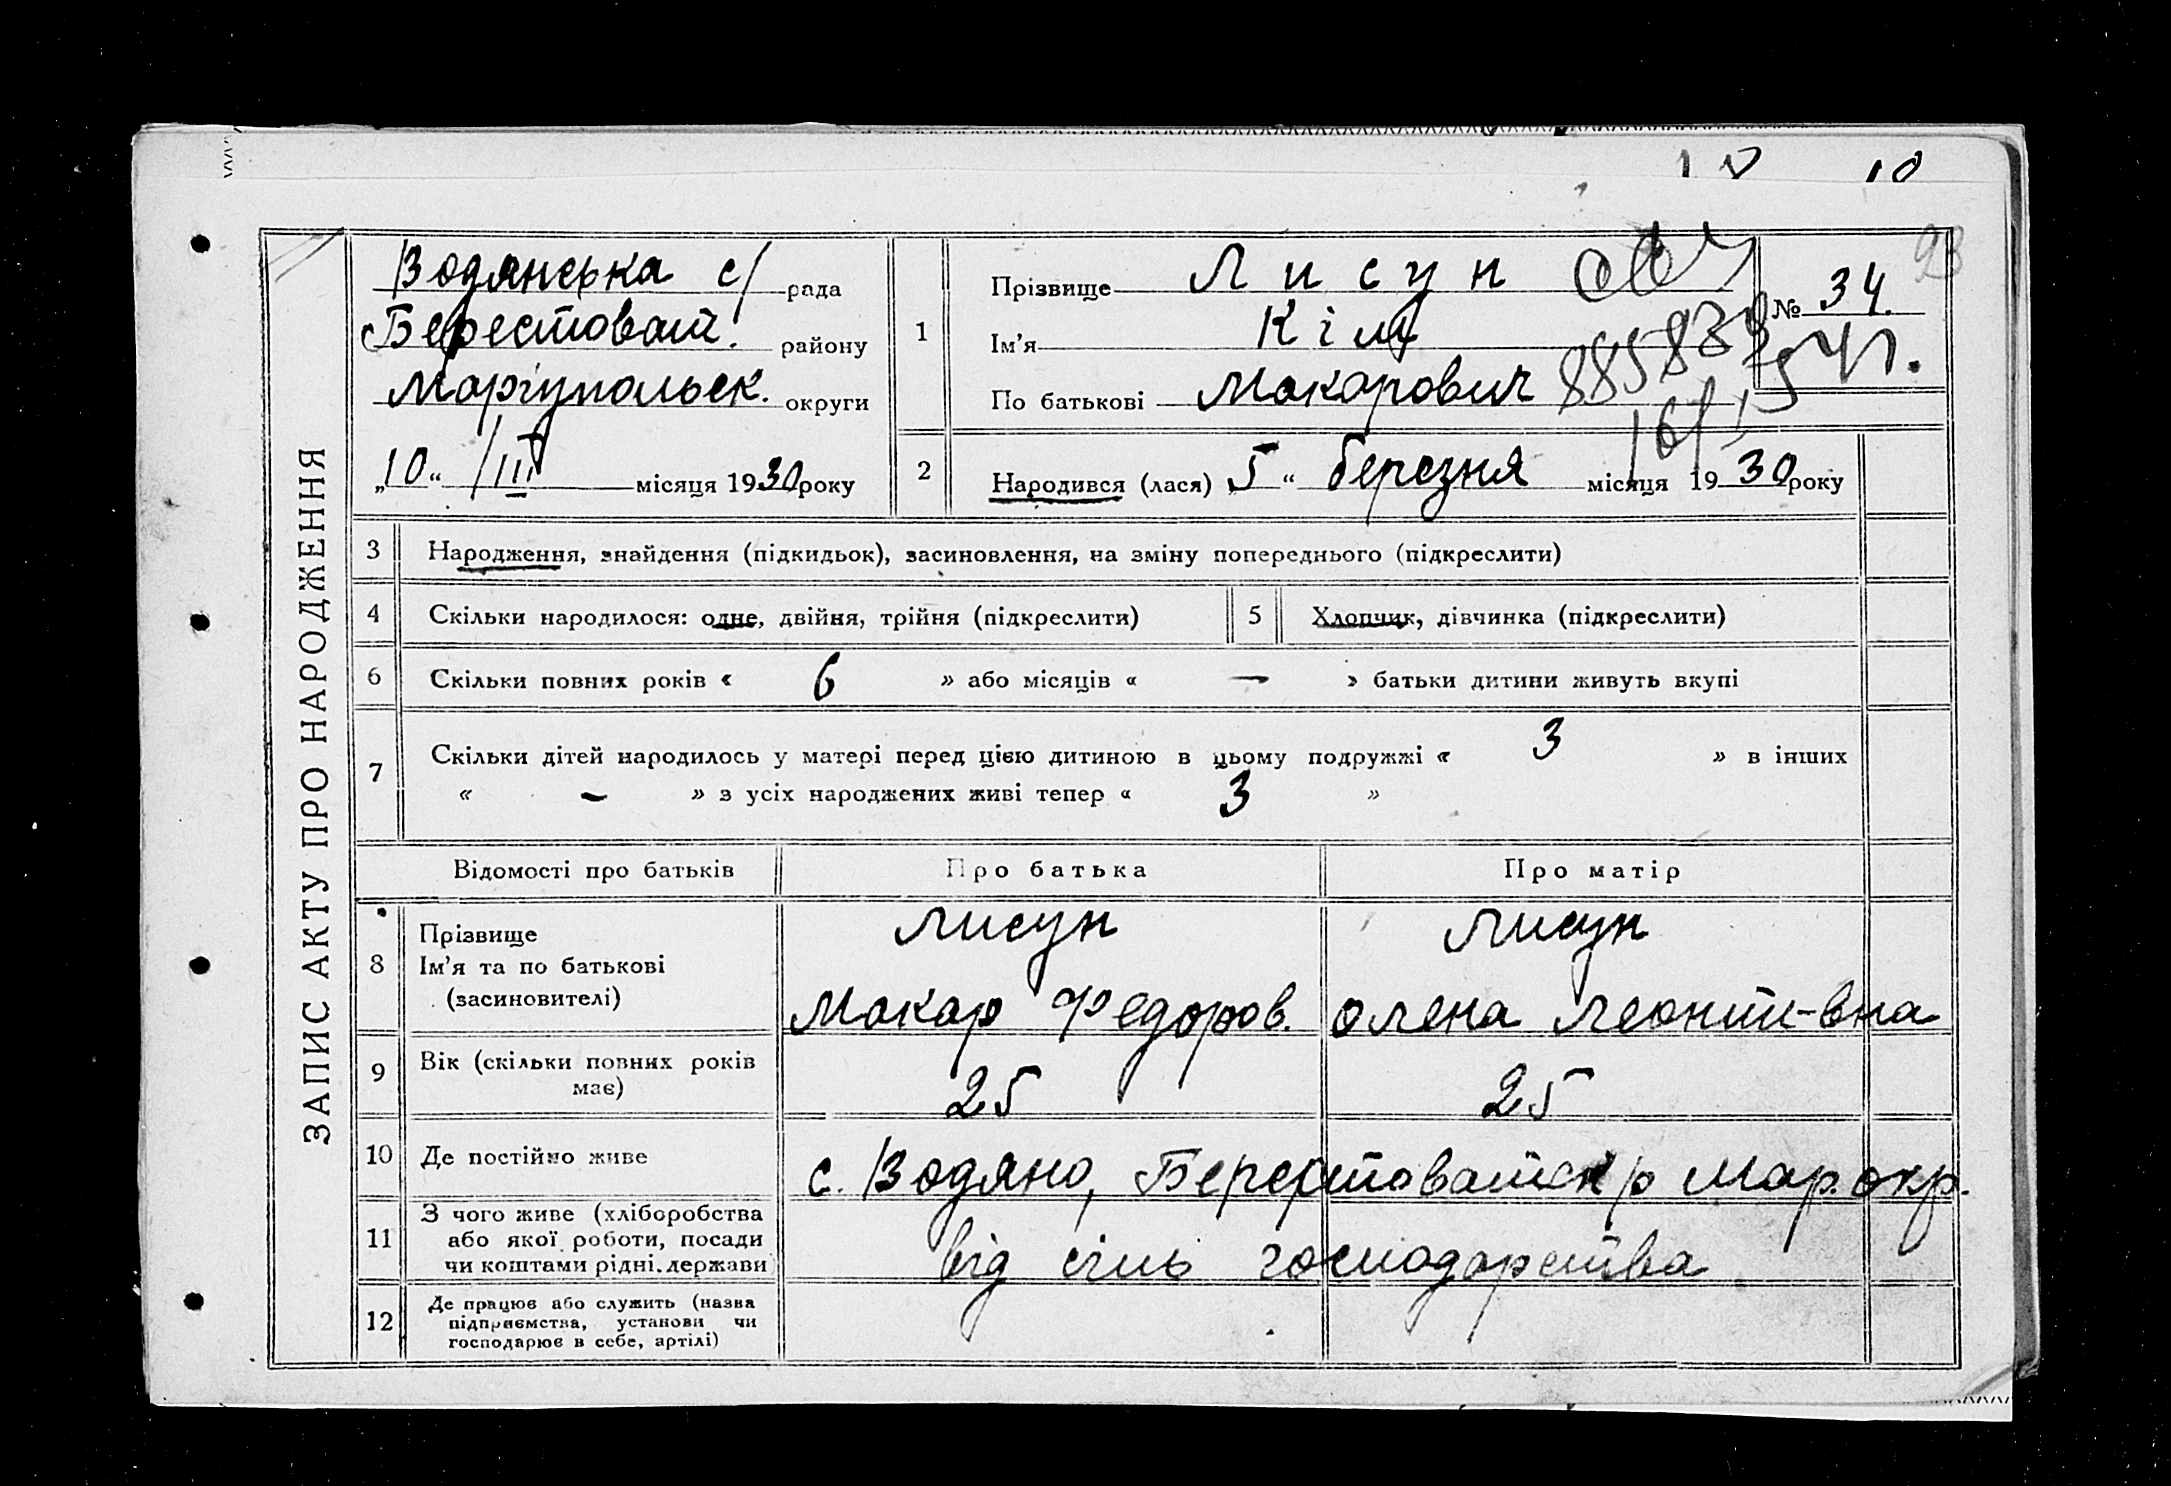 ЗАПИС АКТУ ПРО НАРОДЖЕННЯ
Водянська с/ рада
Берестоват. району
Маріупольск. округи
„10“ /III місяця 1930 року
1
Прізвище Лисун
Ім’я Кім
По батькові Макарович
№ 34.
93
885839
2
Народився (лася) 5 “ березня місяця 1930 року
3 Народження, знайдення (підкидьок), засиновлення, на зміну попереднього (підкреслити)
4 Скільки народилося: одне, двійня, трійня (підкреслити)
5 Хлопчик, дівчинка (підкреслити)
6 Скільки повних років « 6 » або місяців « — » батьки дитини живуть вкупі
7 Скільки дітей народилось у матері перед цією дитиною в цьому подружжі « 3 » в інших
« – » з усіх народжених живі тепер « 3 »
Відомості про батьків Про батька Про матір
8 Прізвище
Ім’я та по батькові
(засиновителі)
Лисун
Макар Федоров.
Лисун
Олена Леонти-вна
9 Вік (скільки повних років
має)
25 25
10 Де постійно живе с. Водяно, Берестоватск р Мар. окр.
11 З чого живе (хліборобства
або якої роботи, посади
чи коштами рідні, держави
від сіль господарства
12 Де працює або служить (назва
підприємства, установи чи
господарює в себе, артілі)